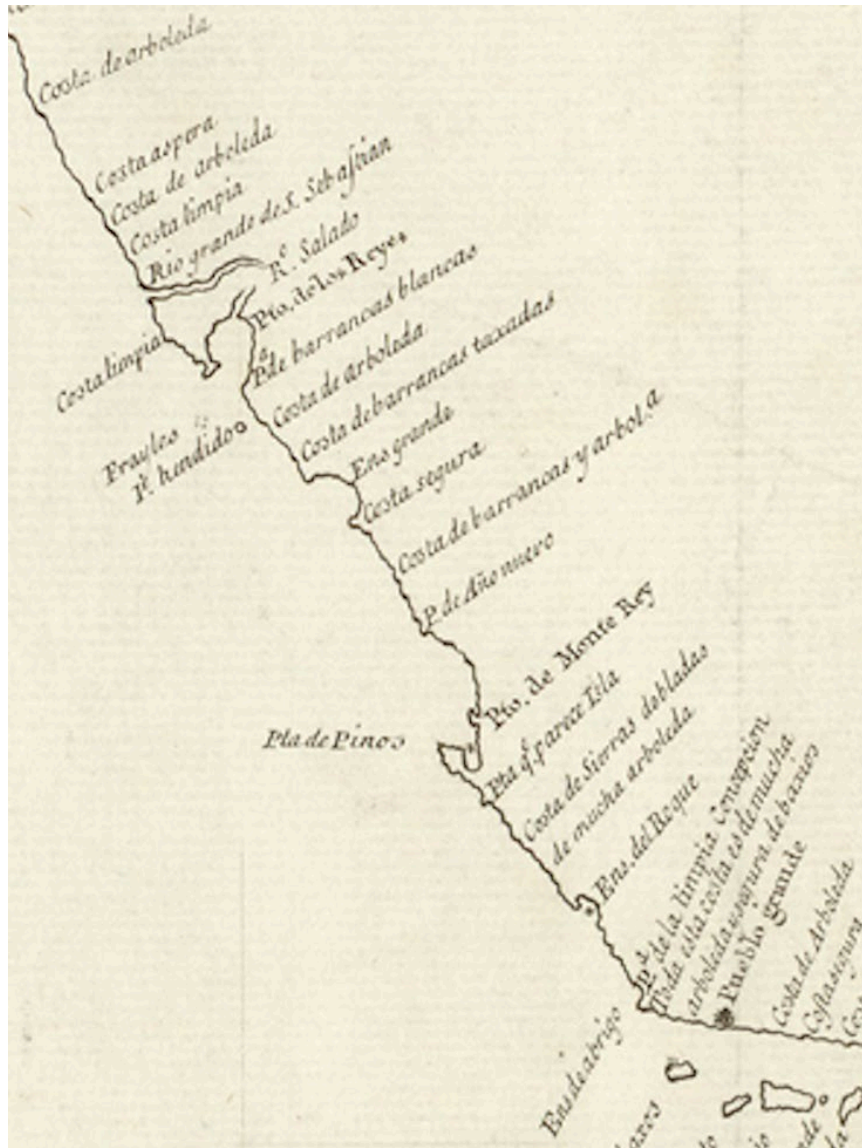 Costa de arboleda
Costa aspera
Costa de arboleda
Costa limpia
Rio grande de S. Sebastian
R.º Salado
Pto. de los Reyes
Costa limpia
P.ª de barrancas blancas
Costa de arboleda
Costa de barrancas taxadas
Frayles
P.º hendido
Ens grande
Costa segura
Costa de barrancas y arbol.a
P. de Año nuevo
Pto. de Monte Rey
Pta de Pinos
Pta q.e parece Isla
Costa de Sierras dobladas
de mucha arboleda
Ens. del Roque
P.ta de la limpia Concepcion
Toda esta costa es de mucha
arboleda y segura de baxios
Pueblo grande
Costa de Arboleda
Costa segura
Ens de abrigo